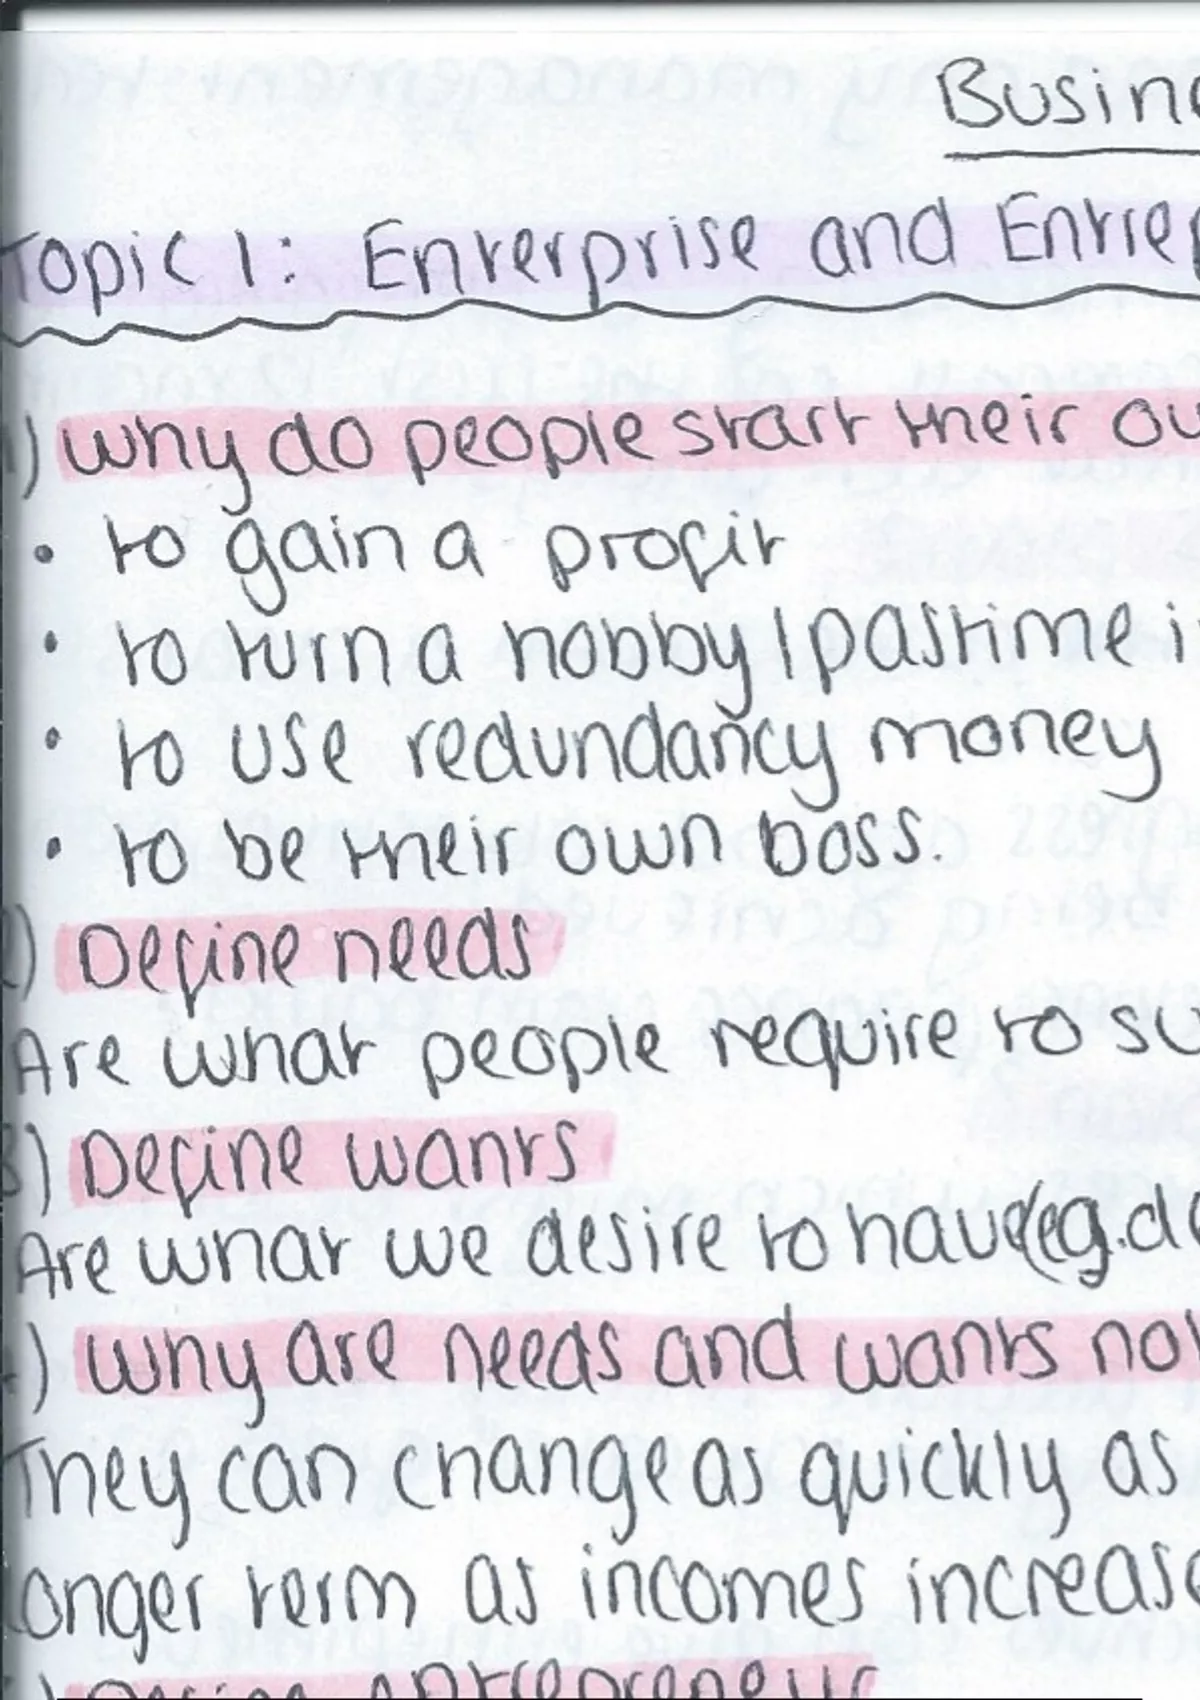 Busin
Topic 1: Enterprise and Entrep
1) Why do people start their ow
• to gain a profit
• to turn a hobby/pastime i
• to use redundancy money
• to be their own boss.
2) Define needs
Are what people require to su
3) Define wants
Are what we desire to have(eg.d
4) Why are needs and wants not
They can change as quickly as
longer term as incomes increase
) Define entrepreneur